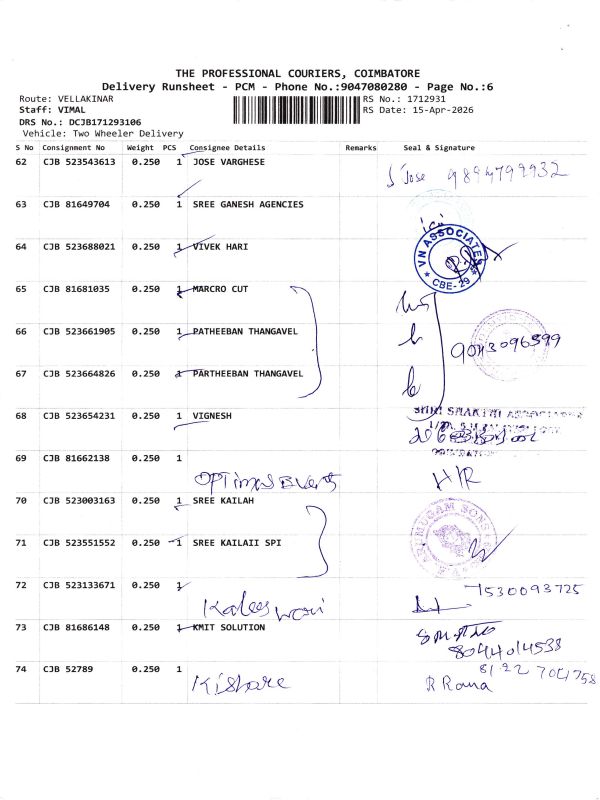 THE PROFESSIONAL COURIERS, COIMBATORE
Delivery Runsheet - PCM - Phone No.:9047080280 - Page No.:6
Route: VELLAKINAR RS No.: 1712931
Staff: VIMAL RS Date: 15-Apr-2026
DRS No.: DCJB171293106
Vehicle: Two Wheeler Delivery
S No Consignment No Weight PCS Consignee Details Remarks Seal & Signature
62 CJB 523543613 0.250 1 JOSE VARGHESE S Jose 9894799932
63 CJB 81649704 0.250 1 SREE GANESH AGENCIES
64 CJB 523688021 0.250 1 VIVEK HARI VN ASSOCIATES CBE-29
65 CJB 81681035 0.250 1 MARCRO CUT
66 CJB 523661905 0.250 1 PATHEEBAN THANGAVEL 9043096599
67 CJB 523664826 0.250 1 PARTHEEBAN THANGAVEL
68 CJB 523654231 0.250 1 VIGNESH SHRI SHAKTHI ASSOCIATES
69 CJB 81662138 0.250 1 OPTimas Event HR
70 CJB 523003163 0.250 1 SREE KAILAH
71 CJB 523551552 0.250 1 SREE KAILAII SPI
72 CJB 523133671 0.250 1 Kaleeswari 7530093725
73 CJB 81686148 0.250 1 KMIT SOLUTION 8044014538
74 CJB 52789 0.250 1 Kishore R Rana 8122704758